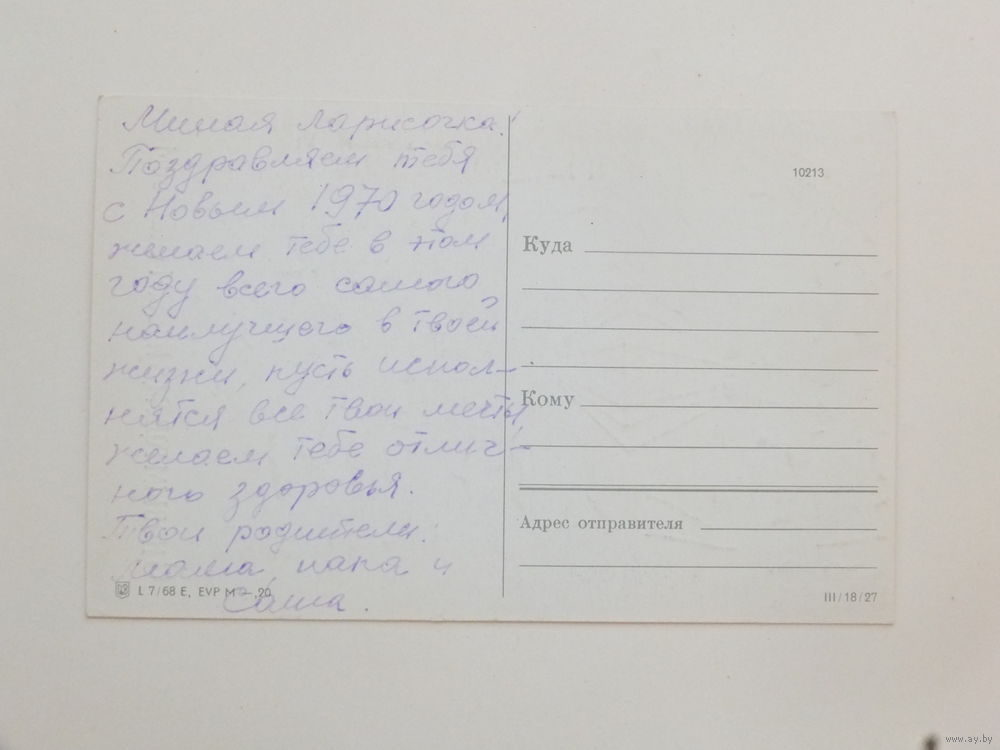 Милая Ларисочка.
Поздравляем тебя
с Новым 1970 годом,
желаем тебе в этом
году всего самого
наилучшего в твоей
жизни, пусть испол-
нятся все твои мечты,
желаем тебе отлич-
ного здоровья.
Твои родители:
мама, папа и
Саша.
L 7/68 E, EVP M –,20
10213
Куда
Кому
Адрес отправителя
III/18/27
www.ay.by